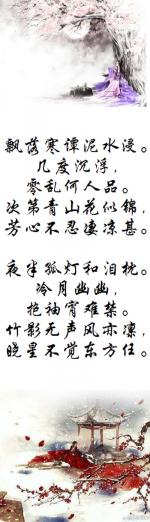 飘落寒谭泥水浸。
几度沉浮，
零乱何人品。
次第青山花似锦，
芳心不忍凄凉甚。
夜半孤灯和泪枕。
冷月幽幽，
抱袖宵难禁。
竹影无声风亦凛，
晓星不觉东方任。